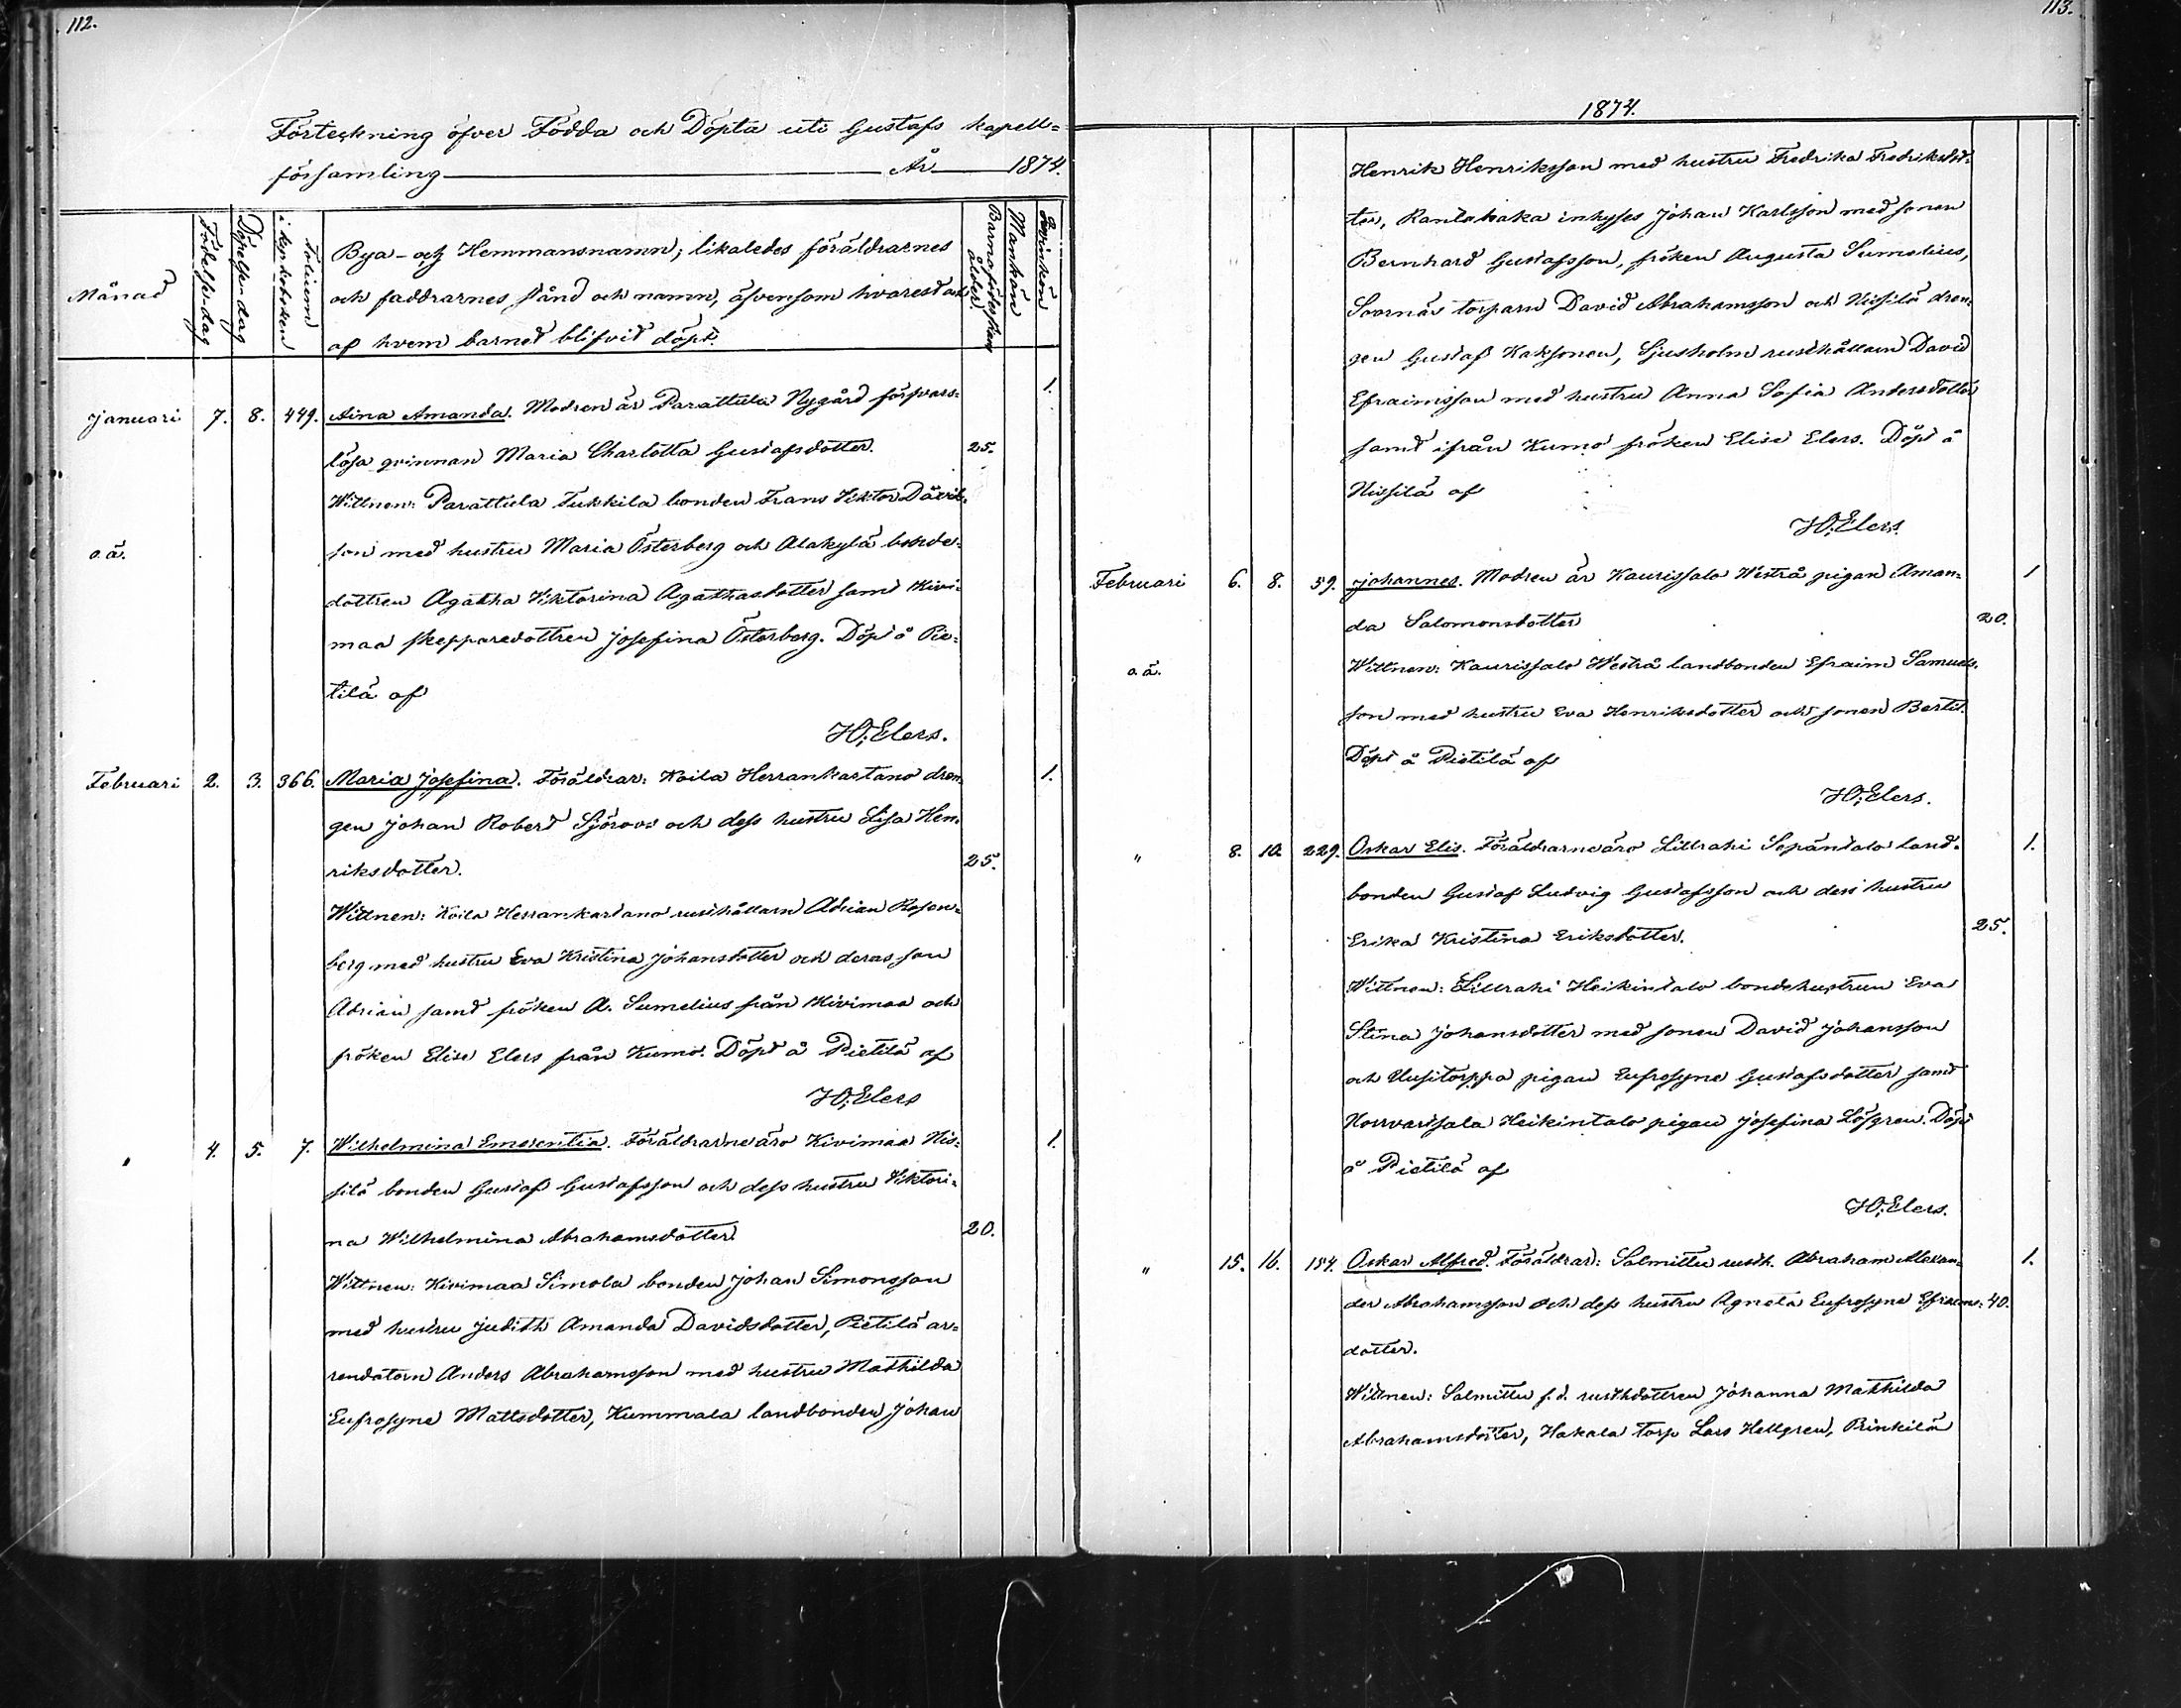 112.
Förteckning öfver Födda och Döpta uti Gustafs kapell=
församling År 1874.
Månad
Födelse-dag
Döpelse-dag
Folium i kyrkoboken
Bya- och Hemmansnamn; likaledes föräldrarnes
och faddrarnes stånd och namn, äfvensom hvarest och
af hvem barnet blifvit döpt.
Barnaföderskans ålder.
Mankön
Qvinkön
Januari 7. 8. 449. Aina Amanda. Modren är Parattula Nygård försvars= 1.
lösa qvinnan Maria Charlotta Gustafsdotter. 25.
Wittnen: Parattula Tukkila bonden Frans Viktor Davids=
o.ä. son med hustru Maria Österberg och Alakylä bonde=
dottren Agatha Viktorina Agathasdotter samt Kivi=
maa skepparedottren Josefina Österberg. Döpt å Pie=
tilä af
H. Elers.
Februari 2. 3. 366. Maria Josefina. Föräldrar: Koila Herrankartano drän= 1.
gen Johan Robert Sjöroos och dess hustru Lisa Hen=
riksdotter. 25.
Wittnen: Koila Herrankartano rusthållarn Adrian Rosen=
berg med hustru Eva Kristina Johansdotter och deras son
Adrian samt fröken A. Sumelius från Kivimaa och
fröken Elise Elers från Kumo. Döpt å Pietilä af
H. Elers
" 4. 5. 7. Wilhelmina Emerentia. Föräldrarne äro Kivimaa Nis= 1.
silä bonden Gustaf Gustafsson och dess hustru Viktori=
na Wilhelmina Abrahamsdotter. 20.
Wittnen: Kivimaa Simola bonden Johan Simonsson
med hustru Judith Amanda Davidsdotter, Pietilä ar=
rendatorn Anders Abrahamsson med hustru Mathilda
Eufrosyne Mattsdotter, Kummala landbonden Johan
113.
1874.
Henrik Henriksson med hustru Fredrika Fredriksdot=
ter, Rantakaka inhyses Johan Karlsson med sonen
Bernhard Gustafsson, fröken Augusta Sumelius,
Soornäs torparn David Abrahamsson och Nissilä drän=
gen Gustaf Kaksonen, Sjusholm rusthållarn David
Efraimsson med hustru Anna Sofia Andersdotter
samt ifrån Kumo fröken Elise Elers. Döpt å
Nissilä af
H. Elers.
Februari 6. 8. 59. Johannes. Modren är Kaurissalo Westrå pigan Aman= 1
da Salomonsdotter 20.
o.ä. Wittnen: Kaurissalo Westrå landbonden Efraim Samuels=
son med hustru Eva Henriksdotter och sonen Bertil.
Döpt å Pietilä af
H. Elers.
" 8. 10. 229. Oskar Elis. Föräldrarne äro Lillrahi Sepäntalo land= 1.
bonden Gustaf Ludvig Gustafsson och dess hustru
Erika Kristina Eriksdotter. 25.
Wittnen: Lillrahi Heikintalo bondehustrun Eva
Stina Johansdotter med sonen David Johansson
och Uusitorppa pigan Eufrosyne Gustafsdotter samt
Heikintalo pigan Josefina Löfgren. Döpt
å Pietilä af
H. Elers.
" 15. 16. 154. Oskar Alfred. Föräldrar: Salmittu rusth. Abraham Alexan= 1.
der Abrahamsson och dess hustru Agneta Eufrosyne Efraims= 40.
dotter.
Wittnen: Salmittu f.d. rusthdottren Johanna Mathilda
Abrahamsdotter, Hakala torp. Lars Hellgren, Brinkilä